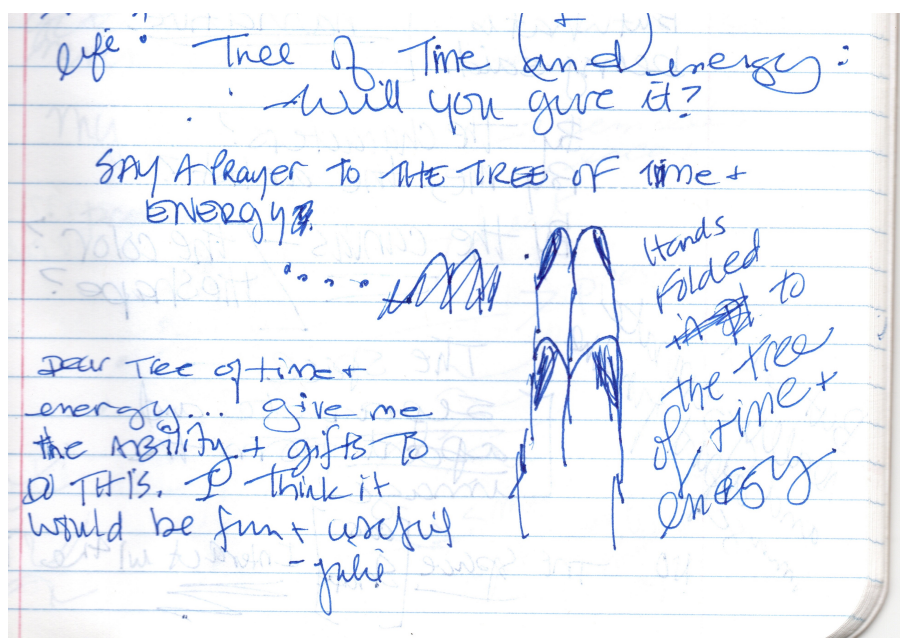 life: Tree of Time (and energy:
+
Will you give it?
SAY A Prayer TO THE TREE OF TIme +
ENERGY
Hands
Folded
to
the tree
of time +
energy.
Dear Tree of time +
energy... give me
the Ability + gifts TO
DO THIS. I think it
would be fun + useful
- Julie